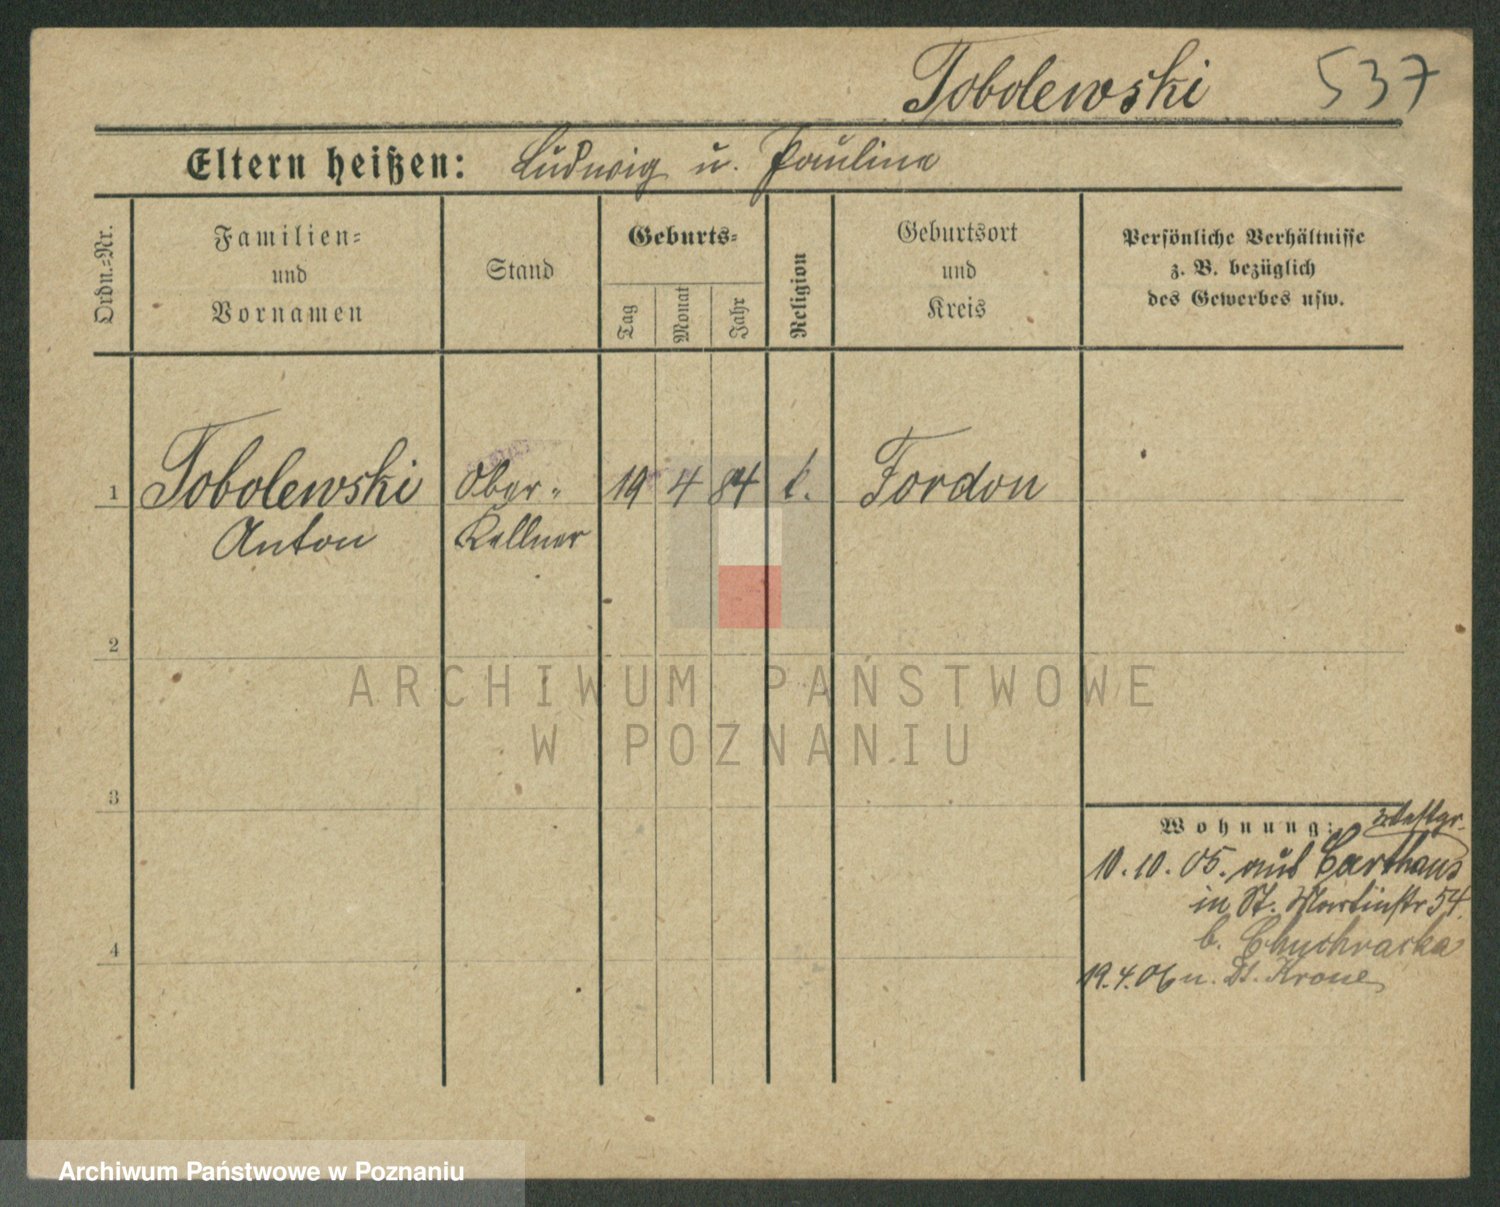 Tobolewski 537
Eltern heißen: Ludwig u. Pauline
Ordn.=Nr.
Familien=
und
Vornamen
Stand
Geburts=
Tag
Monat
Jahr
Religion
Geburtsort
und
Kreis
Persönliche Verhältnisse
z. B. bezüglich
des Gewerbes usw.
1 Tobolewski Ober= 19 4 84 k. Fordon
Anton Kellner
2
3
4
Wohnung: Westpr.
10.10.05. aus Carthaus
in St. Martinstr 54.
b.
19.4.06 n. Dt. Krone
ARCHIWUM PAŃSTWOWE
W POZNANIU
Archiwum Państwowe w Poznaniu